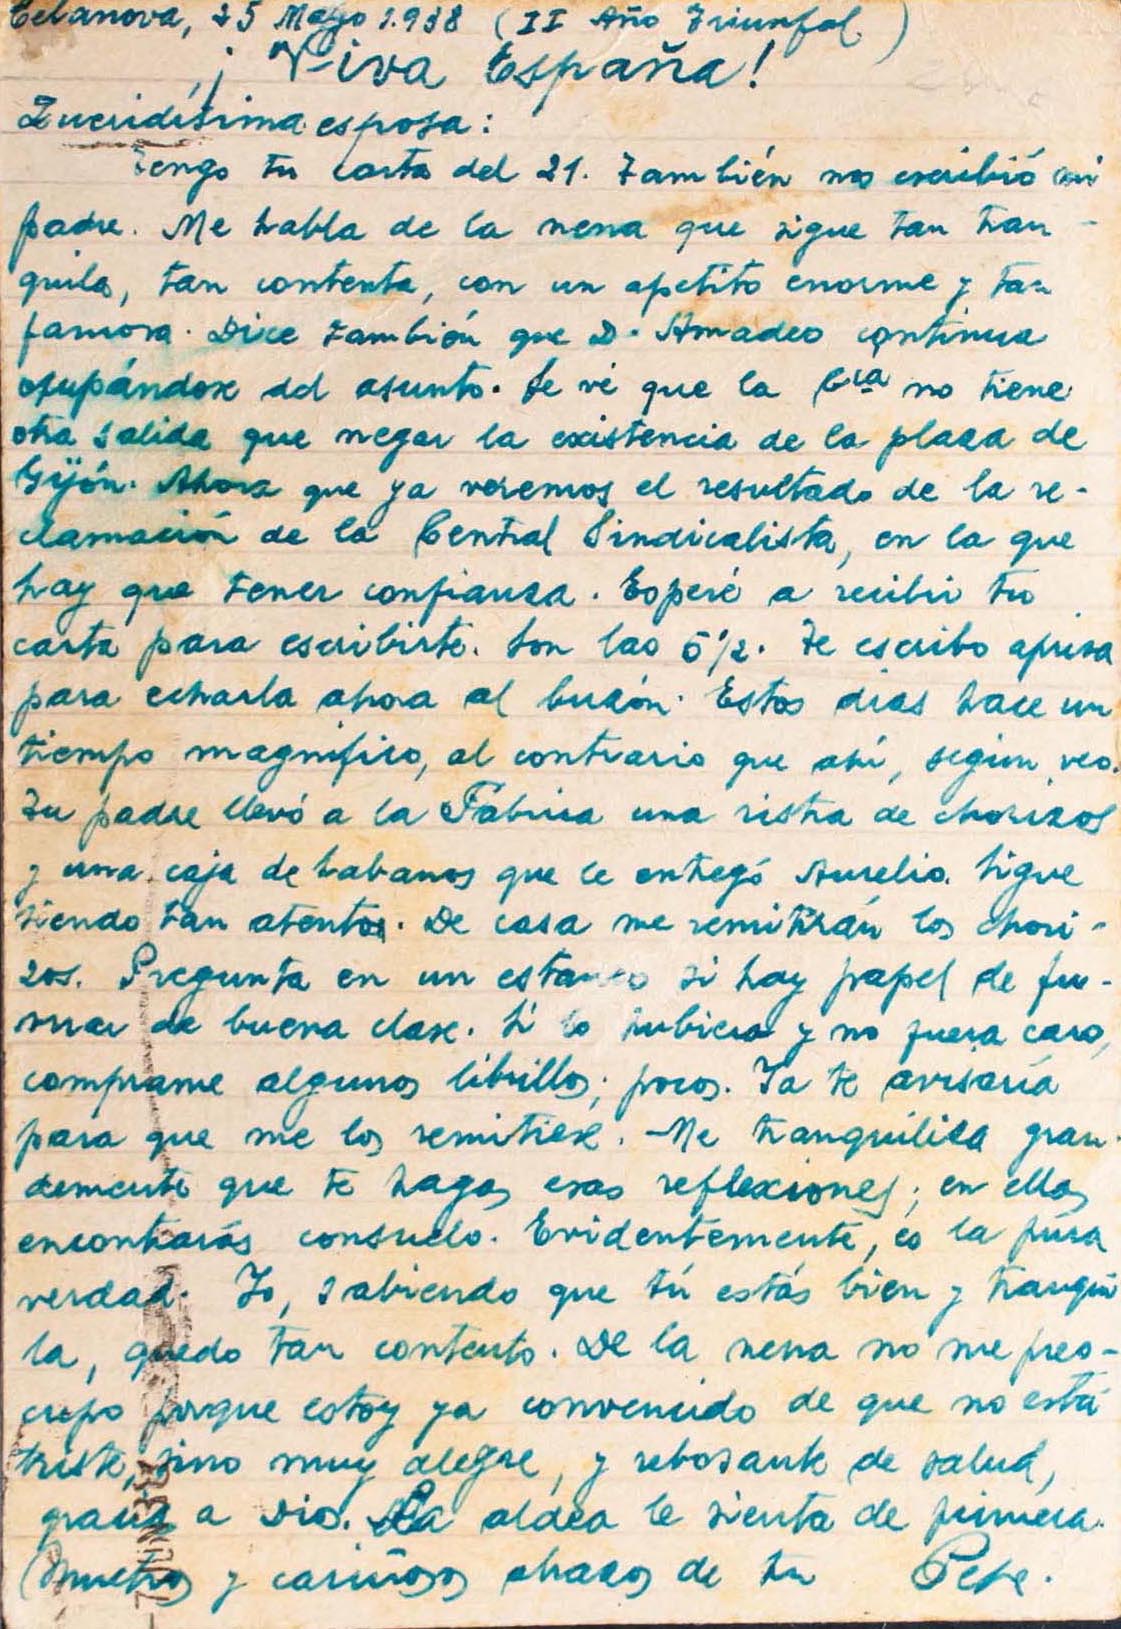 Celanova, 25 Mayo 1.938 (II Año Triunfal)
¡Viva España!
Queridísima esposa:
Tengo tu carta del 21. También nos escribió mi
padre. Me habla de la nena que sigue tan tran-
quila, tan contenta, con un apetito enorme y tan
famosa. Dice también que D. Amadeo continua
ocupándose del asunto. Se vé que la Cía no tiene
otra salida que negar la existencia de la plaza de
Gijón. Ahora que ya veremos el resultado de la re-
clamación de la Central Sindicalista, en la que
hay que tener confianza. Esperé a recibir tu
carta para escribirte. Son las 5 1/2. Te escribo aprisa
para echarla ahora al buzón. Estos dias hace un
tiempo magnífico, al contrario que ahí, según veo.
Tu padre llevó a la Fabrica una ristra de chorizos
y una caja de habanos que le entregó Aurelio. Sigue
siendo tan atento. De casa me remitirán los chori-
zos. Pregunta en un estanco si hay papel de fu-
mar de buena clase. Si lo hubiera y no fuera caro,
comprame algunos librillos; pocos. Ya te avisaría
para que me los remitiese. -Me tranquiliza gran-
demente que te hagas esas reflexiones; en ellas
encontrarás consuelo. Evidentemente, es la pura
verdad. Yo, sabiendo que tú estás bien y tranqui
la, quedo tan contento. De la nena no me preo-
cupo porque estoy ya convencido de que no está
triste, sino muy alegre, y rebosante de salud,
gracias a Dios. La aldea le sienta de primera.
Muchos y cariñosos abrazos de tu Pepe.